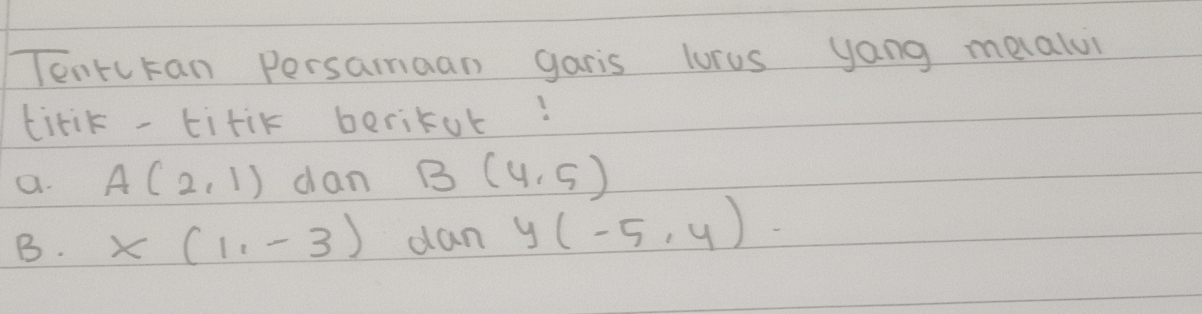 Tentukan Persamaan garis lurus yang melalui
titik - titik berikut !
a. A (2,1) dan B (4,5)
B. x (1,-3) dan y (-5,4).